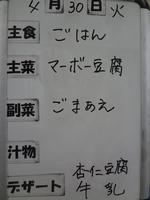 4月30日火
主食 ごはん
主菜 マーボー豆腐
副菜 ごまあえ
汁物
デザート 杏仁豆腐
牛乳